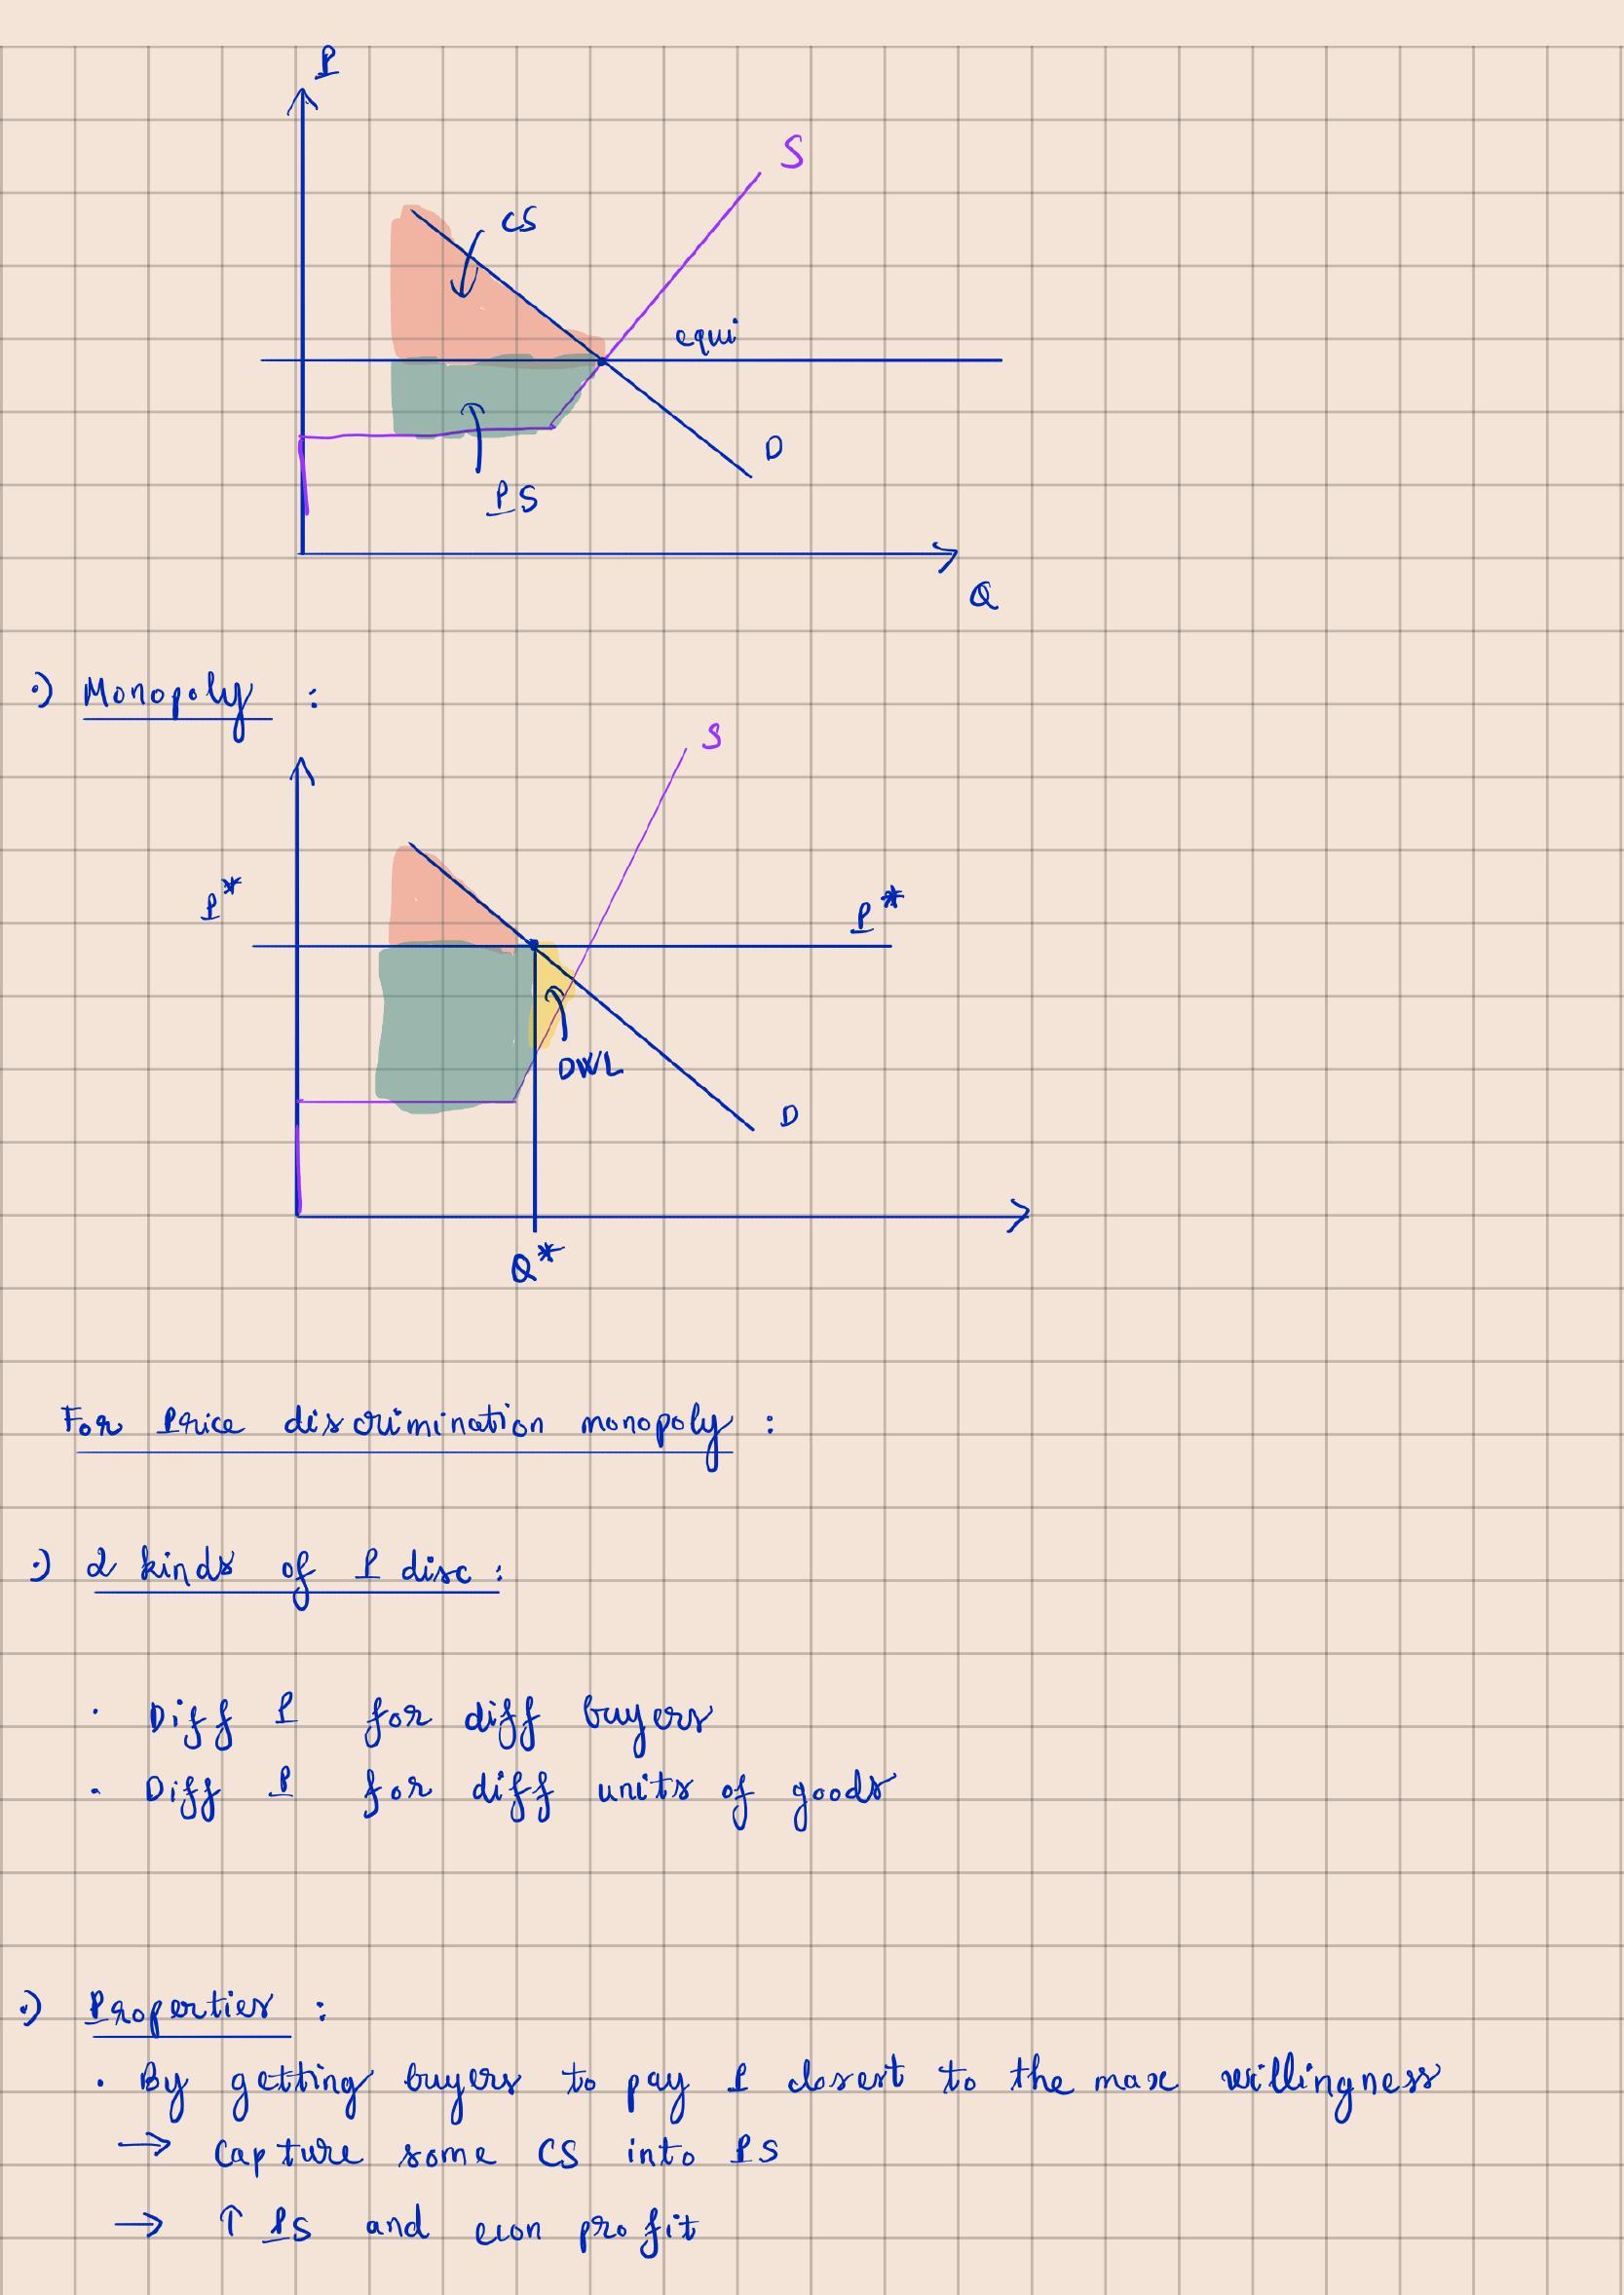 P
S
CS
equi
D
PS
Q
·) Monopoly :
S
P*
P*
DWL
D
Q*
For Price discrimination monopoly :
·) 2 kinds of P disc :
· Diff P for diff buyers
· Diff P for diff units of goods
·) Properties :
· By getting buyers to pay P closest to the max willingness
→ Capture some CS into PS
→ ↑ PS and econ profit